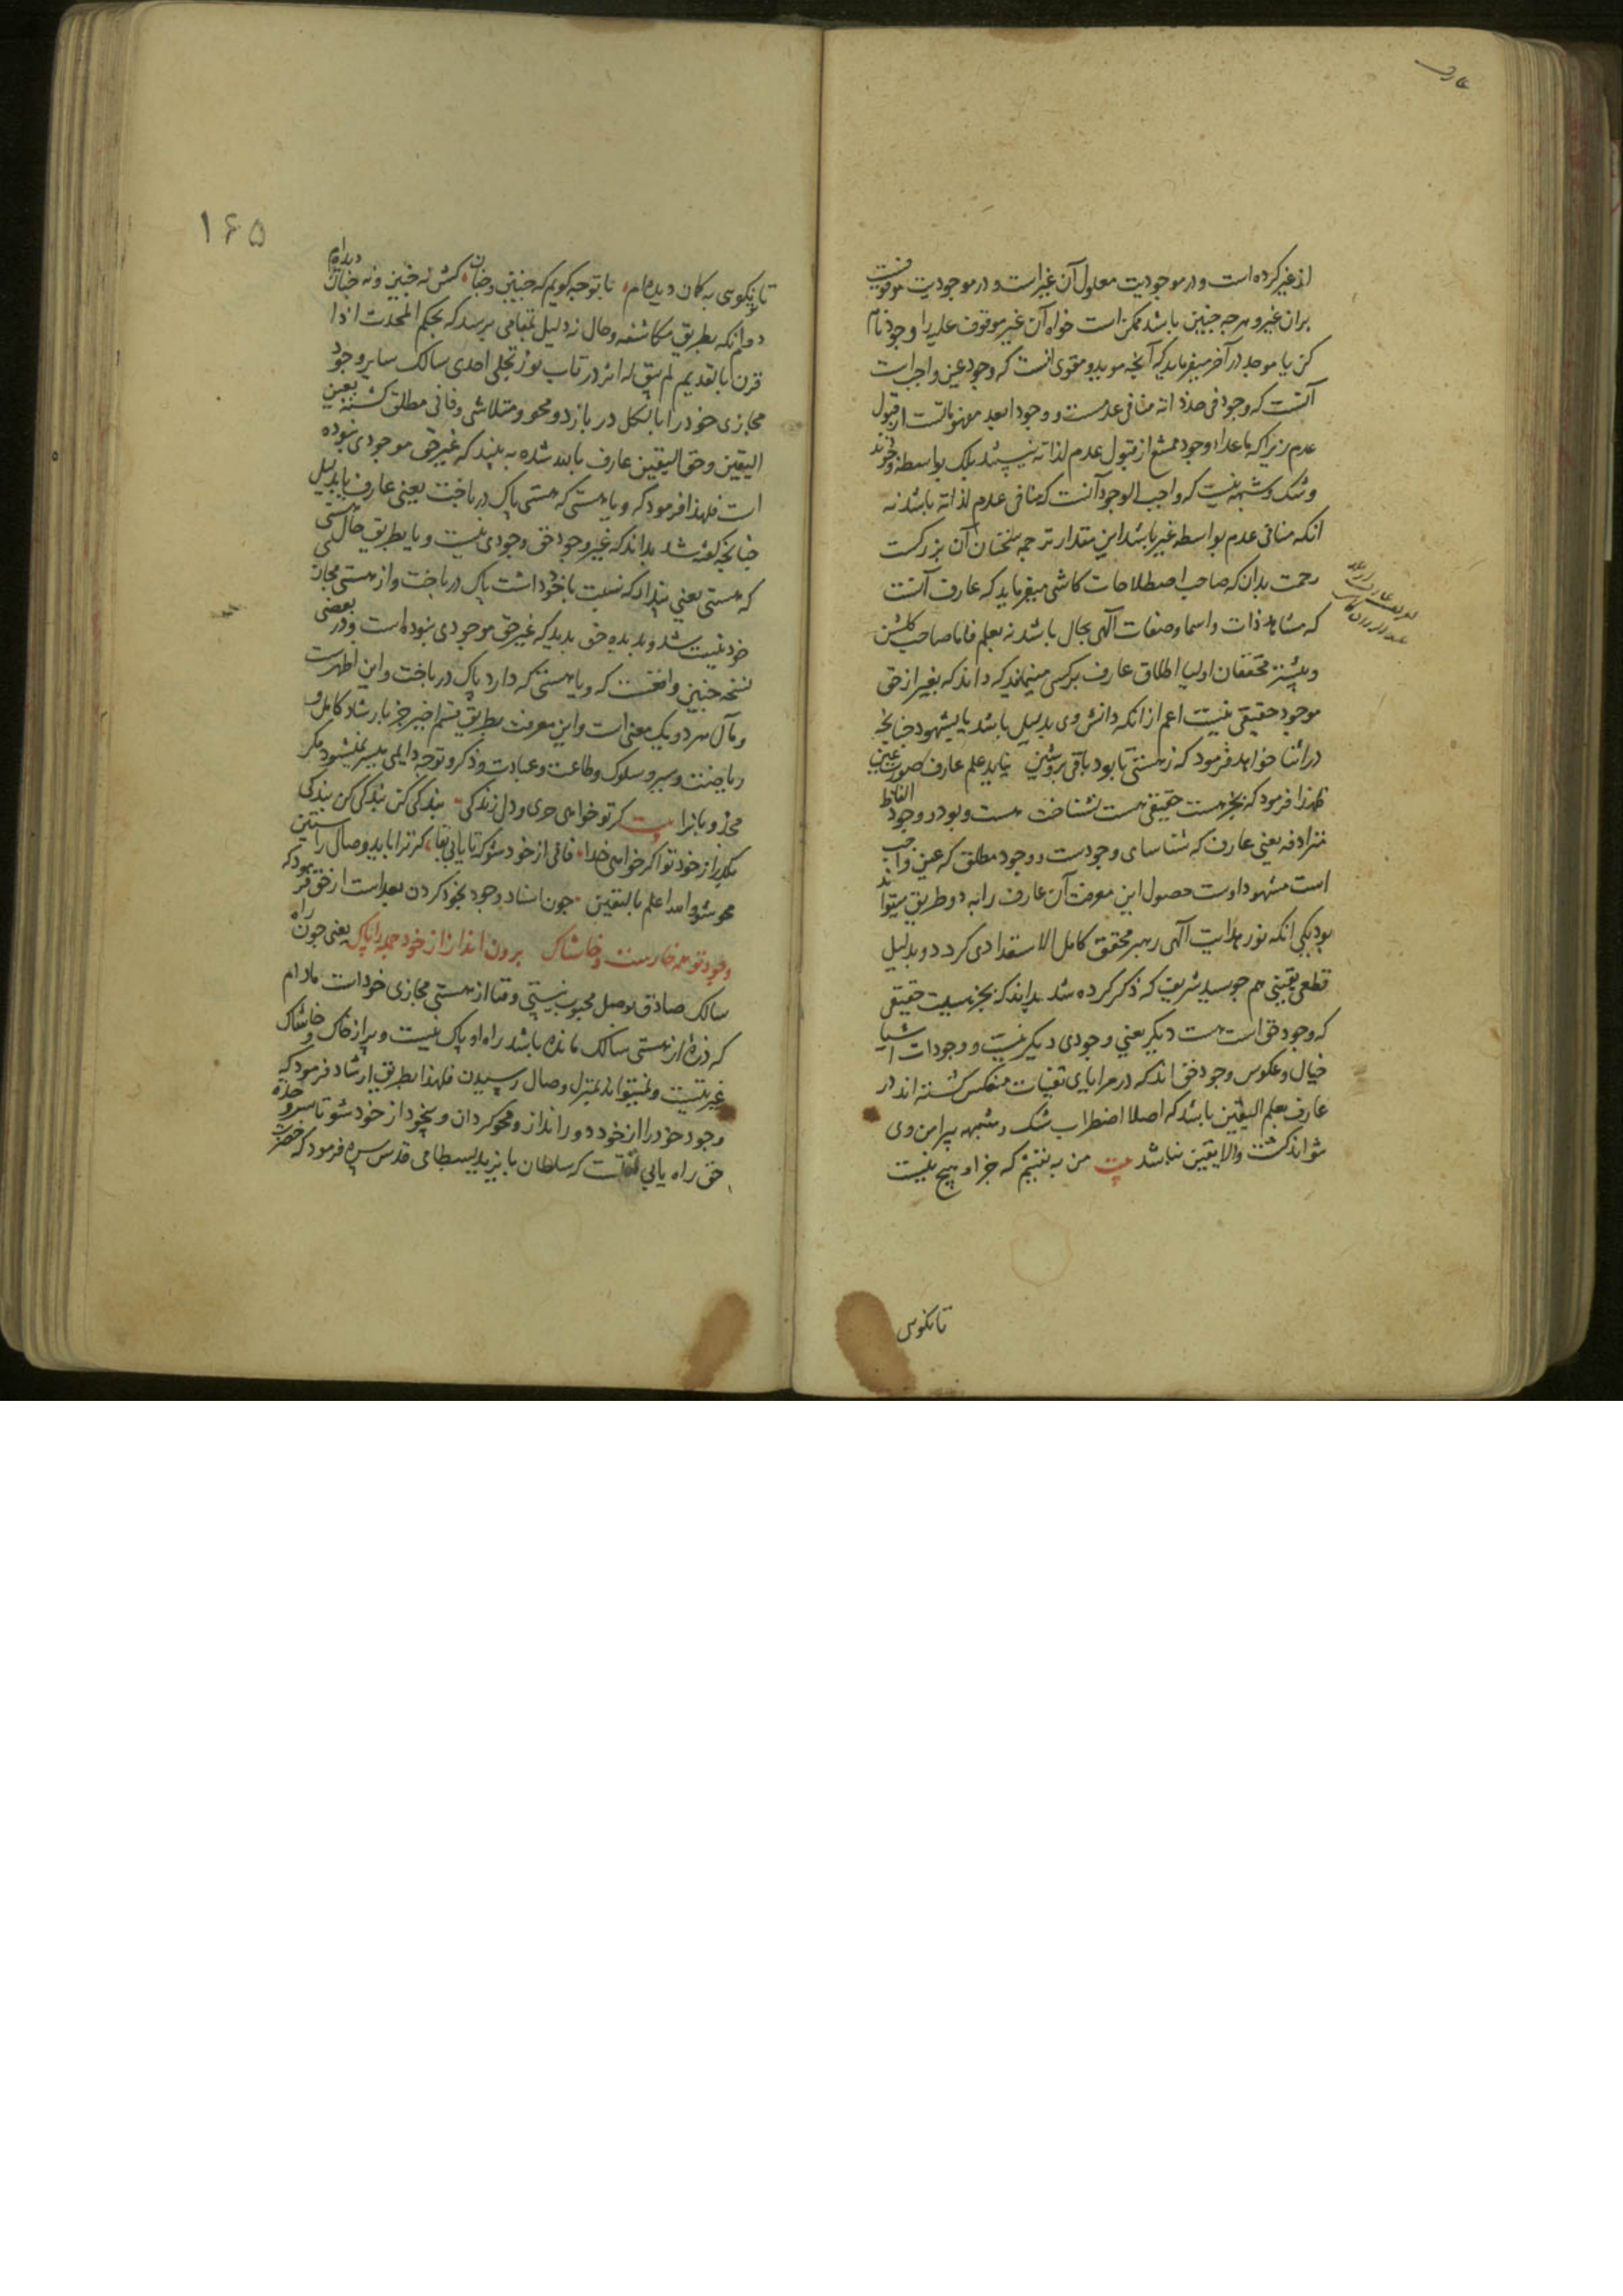 عارف
از غیر کرده است و در موجودیت معلول آن غیر است و در موجودیت موقوفست
بران غیر و هرچه چنین باشد ممکن است خواه آن غیر موقوف علیه را وجود نام
کن یا موجد در آخر میفرماید که آنچه موید و مقوی انست که وجود عین واجب است
آنست که وجود فی حد ذاته منافی عدمست و وجود ابعد مفهوماتست از قبول
عدم زیرا که ماعداء وجود ممتنع از قبول عدم لذاته نیستند بلکه بواسطه وجودند
و شک و شبهه نیست که واجب الوجود آنست که منافی عدم لذاته باشد نه
انکه منافی عدم بواسطه غیر باشد این مقدار ترجمه سخنان آن بزرکست
رحمت بدان که صاحب اصطلاحات کاشی میفرماید که عارف آنست
که مشاهد ذات و اسما و صفات آلهی بحال باشد نه بعلم فاما صاحب کلشن
و بیشتر محققان اولیا اطلاق عارف بر کسی مینمایند که داند که بغیر از حق
موجود حقیقی نیست اعم از انکه دانش وی بدلیل باشد یا بشهود چنانچه
در اثنا خواهد فرمود که ز هستی تا بود باقی بروشین نیاید علم عارف صورت عین
فلهذا فرمود که بجز هست حقیقی هست نشناخت هست و بود و وجود الفاظ
مترادفه یعنی عارف که شناسای وجودست و وجود مطلق که عین واجب
است مشهود اوست حصول این معرفت آن عارف را به دو طریق میتواند
بود یکی انکه نور هدایت آلهی رهبر محقق کامل الاستعدادی کردد و بدلیل
قطعی یقینی همچو سید شریف که ذکر کرده شد بداند که بجز هست حقیقی
که وجود حق است هست دیکر یعنی وجودی دیکر نیست و وجودات اشیا
خیال و عکوس وجود حق اند که در مرایای تعینات منعکس کشته اند این
عارف بعلم الیقین باشد که اصلا اضطراب شک و شبهه پیرامن وی
نتواند کشت والا یقین نباشد بیت من به یقینم که جز او هیچ نیست
تا نکوی
۱۶۵
تا نکوی به کمان دیده ام تا بتو چه کویم که چنین و چنان کش نه چنین و نه چنان دیده ام
دوم انکه بطریق مکاشفه و حال نه دلیل بمقامی برسد که بحکم المحدث اذا
قرن بالقدیم لم یبق له اثر در تاب نور تجلی احدی سالک سایر وجود
مجازی خود را بالکل در بازد و محو و متلاشی و فانی مطلق کشته بعین
الیقین و حق الیقین عارف بالله شده به بیند که غیر حق موجودی نبوده
است فلهذا فرمود که و یا هستی که هستی پاک در باخت یعنی عارف یا بدلیل
چنانچه کفته شد بداند که غیر وجود حق وجودی نیست و یا بطریق حال هستی
که هستی یعنی پندار که نسبت با خود داشت پاک در باخت و از هستی مجازی
خود نیست شد و بدیده حق بدید که غیر حق موجودی نبوده است و در بعضی
نسخه چنین واقعست که و یا هستی که دارد پاک در باخت و این اظهرست
و مآل هر دو یک معنی است و این معرفت بطریق قسم اخیر جز بارشاد کامل و
ریاضت و سیر و سلوک و طاعت و عبادت و ذکر و توجه دایمی میسر نمیشود مکر
مجذوبانرا بیت کر تو خواهی حری و دل زندکی بندکی کن بندکی کن بندکی
بکذر از خود تو اکر خواهی خدا فانی از خود شو که تا یابی بقا کر ترا باید وصال راستین
محو شو والله اعلم بالیقین چون اسناد وجود بخود کردن بعد است از حق فرمود که
وجود تو همه خارست و خاشاک برون انداز از خود جمله را پاک یعنی چون راه
سالک صادق بوصل محبوب نیستی و فنا از هستی مجازی خود است مادام
که ذره از هستی سالک مانده باشد راه او پاک نیست و پر از خاک و خاشاک
غیریتست و نمیتواند بمنزل وصال رسیدن فلهذا بطریق ارشاد فرمود که
وجود خود را از خود دور انداز و محو کردان و بیخود از خود شو تا بسر وحدة
حق راه یابی نقلست که سلطان بایزید بسطامی قدس سره فرمود که حضرت